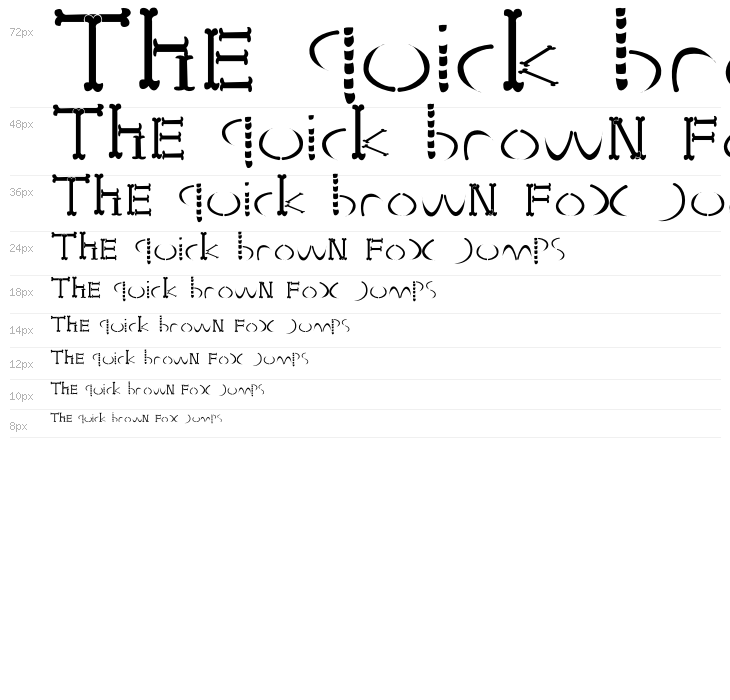 72px ThE quick bro
48px ThE quick browN Fo
36px ThE quick browN FoX Ju
24px ThE quick browN FoX JumPS
18px ThE quick browN FoX JumPS
14px ThE quick browN FoX JumPS
12px ThE quick browN FoX JumPS
10px ThE quick browN FoX JumPS
8px ThE quick browN FoX JumPS